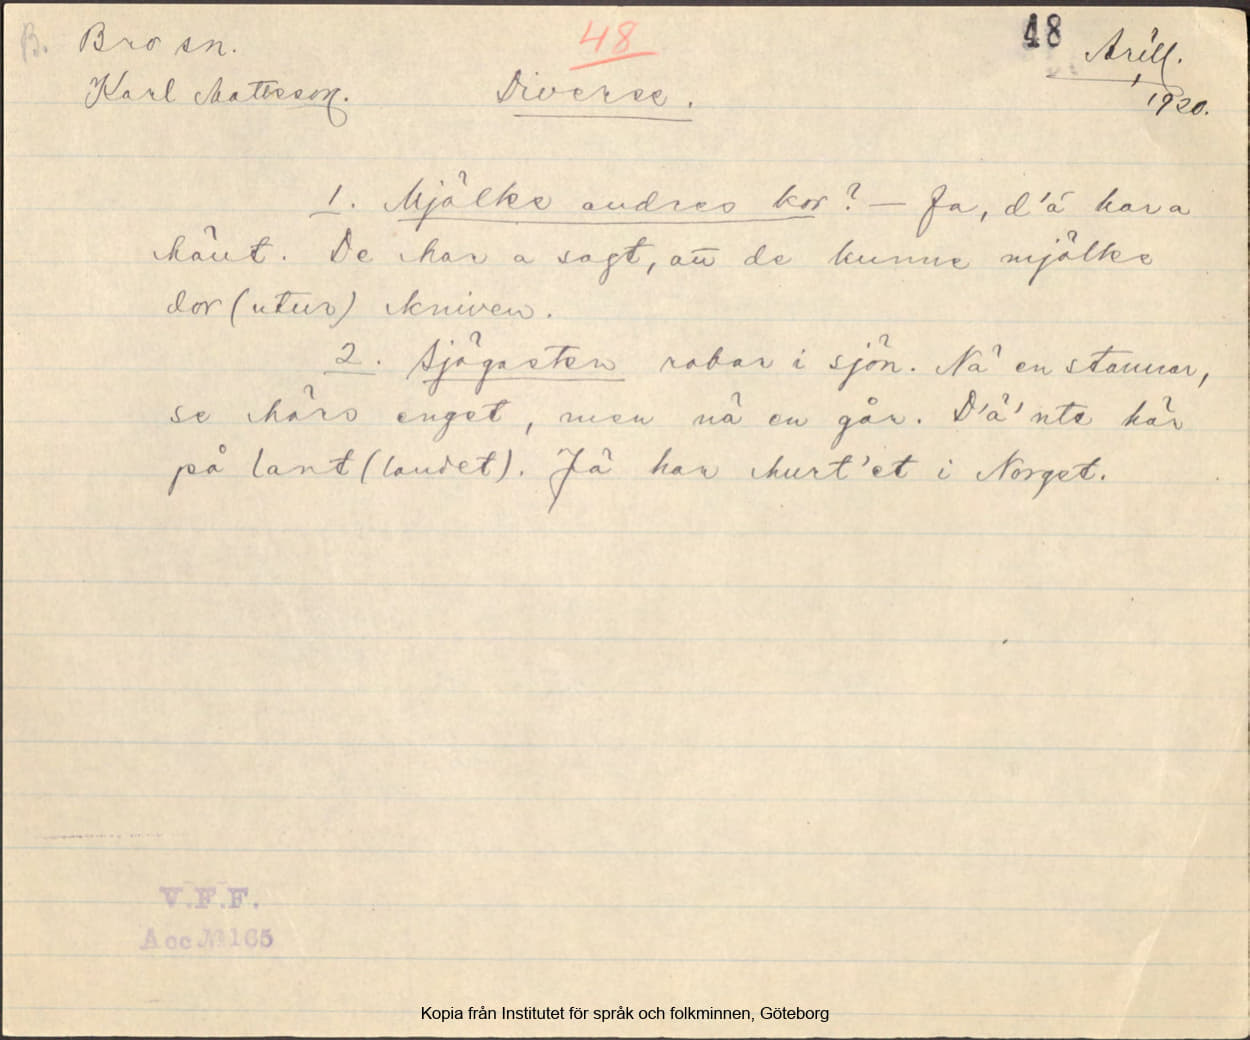 B. Bro sn. 48 48 Arill.
Karl Mattsson. Diverse. 1920.
1. Mjölke andres kor? — Ja, d'ä bara
hänt. De har a sagt, att de kunne mjölke
dor (utur) kniven.
2. Sjögasten robar i sjön. Nä en stannar,
se hörs enget, men nä en går. D'ä'nte här
på lant (landet). Jä har hurt'et i Norget.
V.F.F.
Acc № 165
Kopia från Institutet för språk och folkminnen, Göteborg